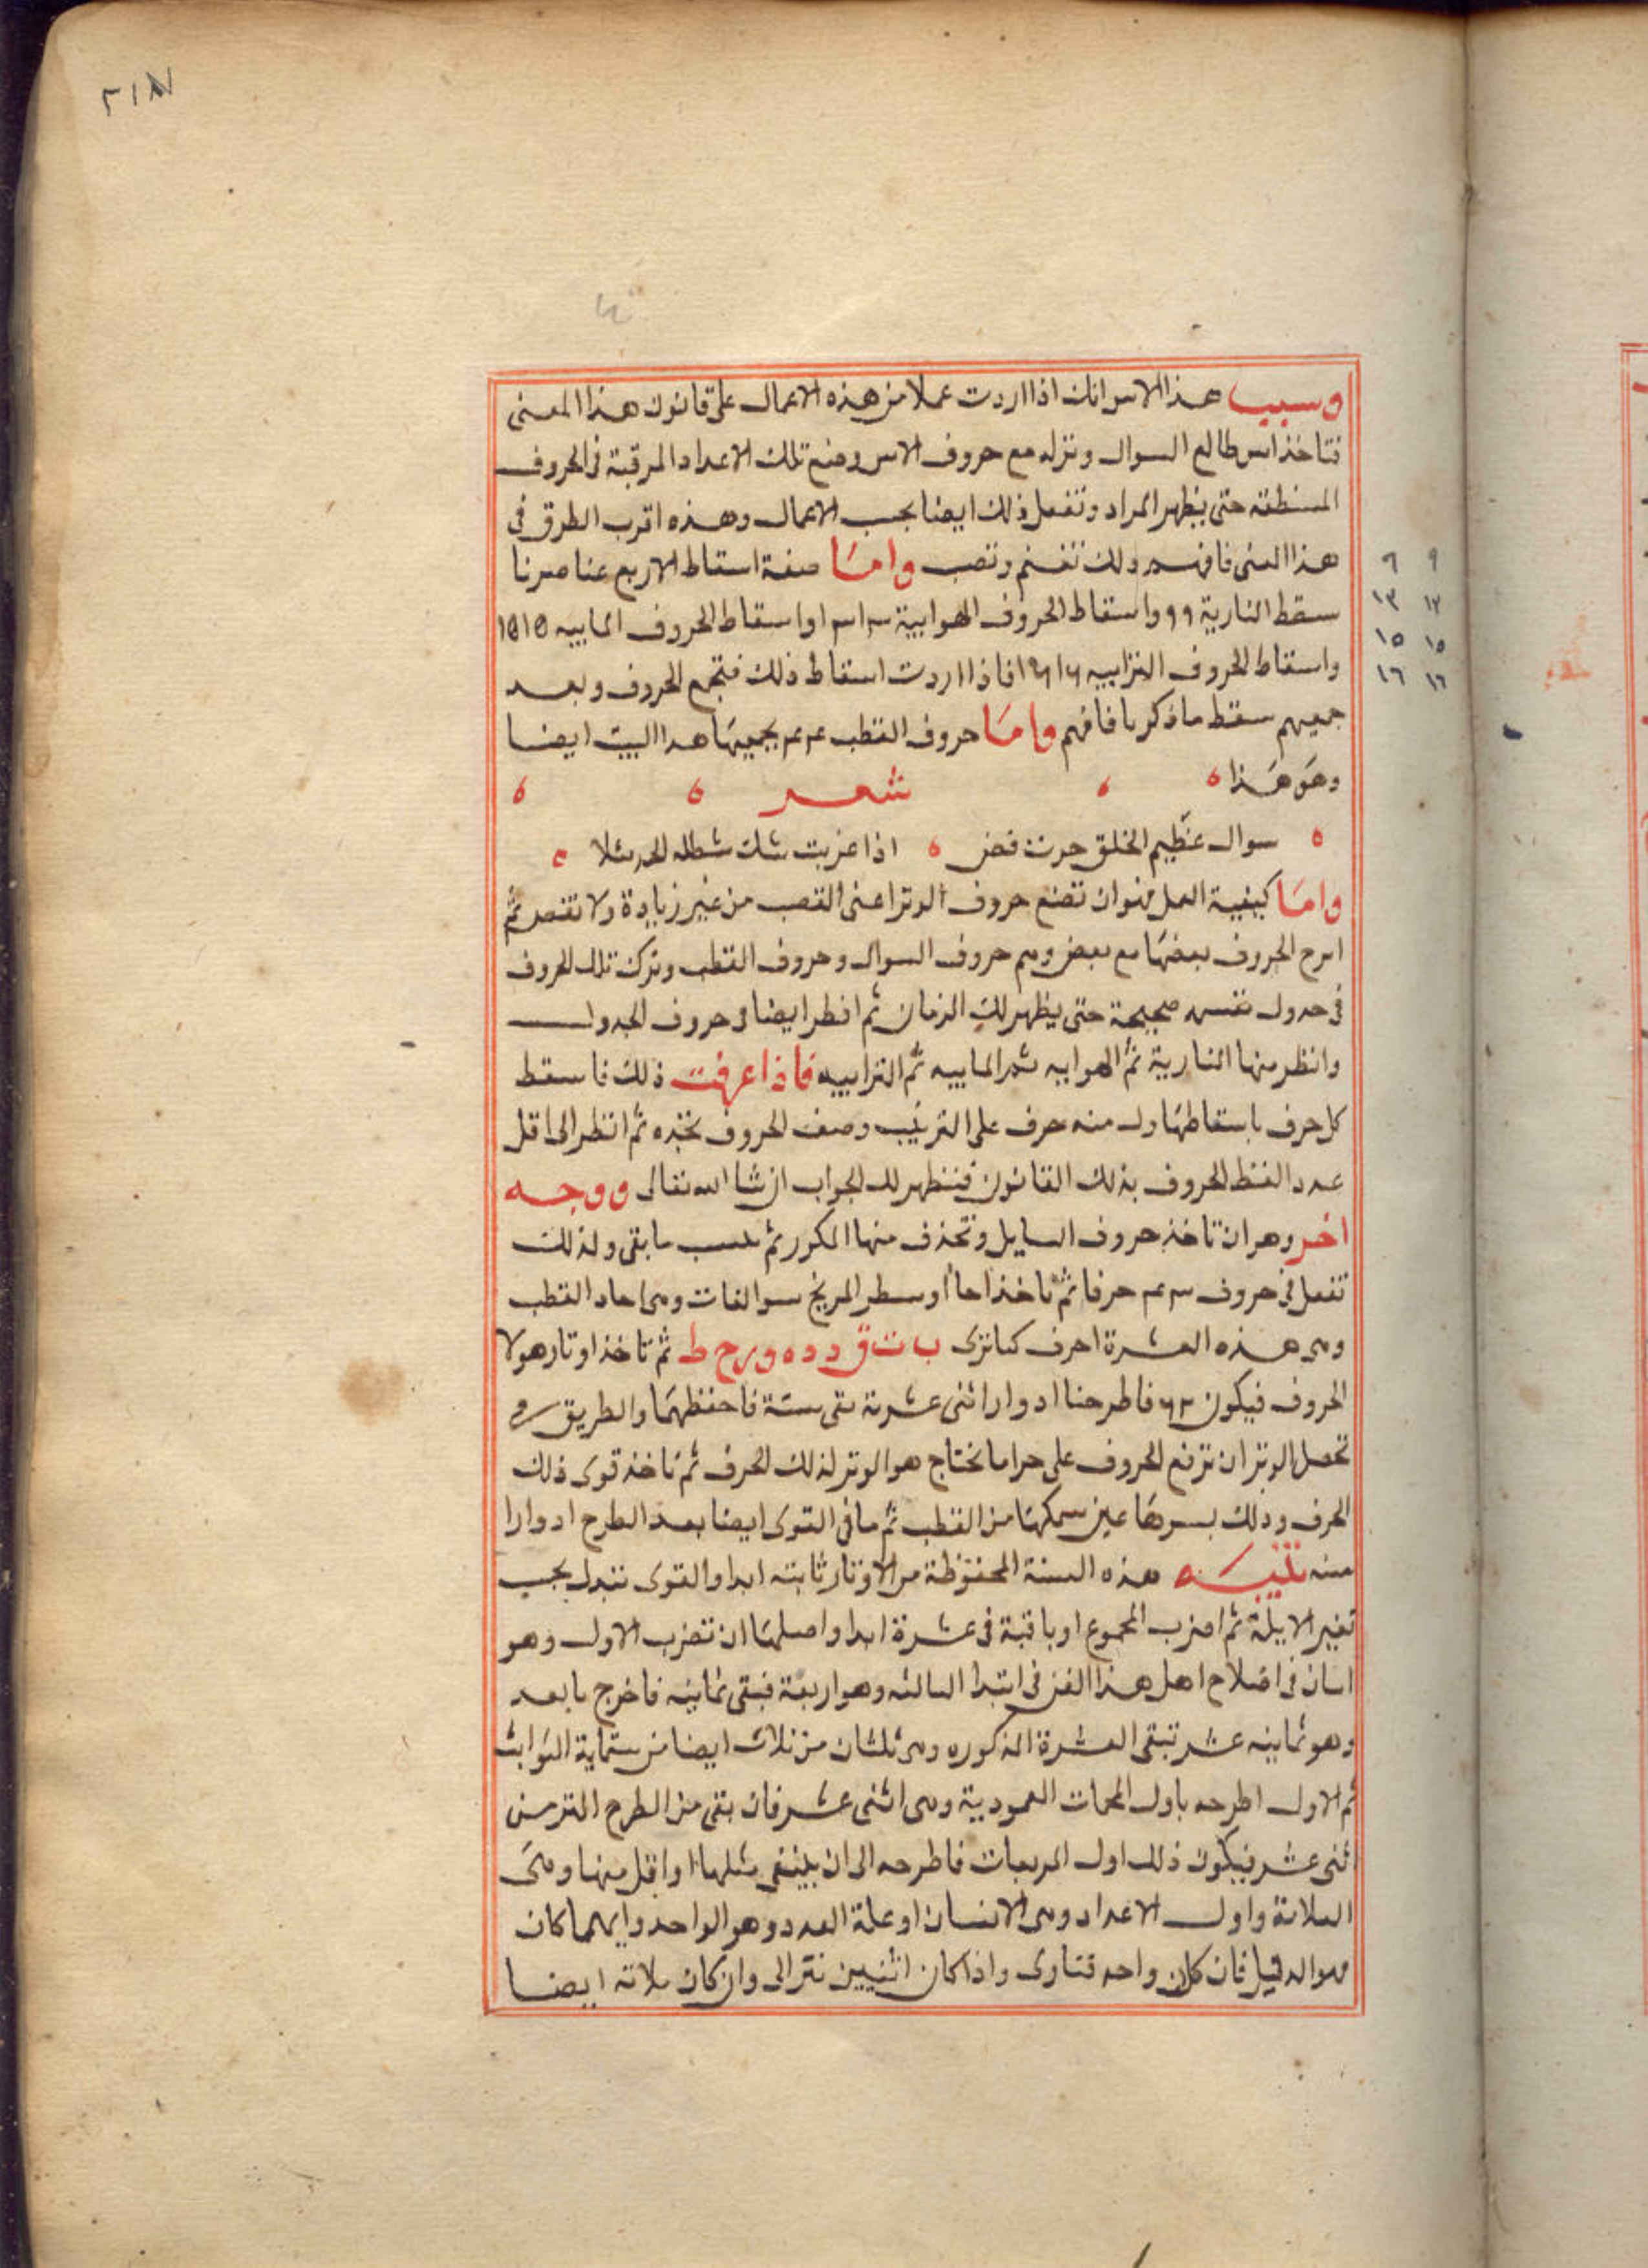 ٢١٨
وسبب هذا الاس انك اذا اردت عملا من هذه الاعمال على قانون هذا المعنى
فتاخذ اس طالع السوال وتنزله مع حروف الاس وضع تلك الاعداد المرقبة فى الحروف
المسنطقه حتى يظهر المراد وتفعل ذلك ايضا بحسب الاعمال وهذه اقرب الطرق فى
هذا المعنى فافهم ذلك تغنم وتصب واما صفة اسقاط الاربع عناصرنا
سقط النارية ٩٩ واسقاط الحروف الهوايية ١٣١٣ واسقاط الحروف الماييه ١٥١٥
واسقاط الحروف الترابيه ١٦١٦ فاذا اردت اسقاط ذلك فتجمع الحروف وبعد
جميهم سقط ماذكرنا فافهم واما حروف القطب ٤٤ يجميها هدا البيت ايضا
وهو هذا
شعر
سوال عظيم الخلق حزت فض اذا غربت شك
واما كيفية العمل فهو ان تضع حروف الوتر اعنى القصب من غير زيادة ولا تنقص ثم
امرح الحروف بعضها مع بعض وهم حروف السوال وحروف القطب وتركت تلك الحروف
فى جدول نقسمه صحيحة حتى يظهر لك الزمان ثم افطر ايضا فى حروف الجدول
وانظر منها النارية ثم الهوايه ثم الماييه ثم الترابيه فاذا عرفت ذلك فاسقط
كل حرف باسقاطها ول منه حرف على الترتيب وصف الحروف تجده ثم انظر الى اقل
عدد القط الحروف بذلك القانون فتظهر لك الجواب ان شا الله تعالى ووجه
اخر وهو ان تاخذ حروف السايل وتحذف منها المكرر ثم تحسب ما بقى ولذلك
تفعل فى حروف ٤٣ حرفا ثم تاخذ احا اوسطر المريخ سوالفات وهى احاد القطب
وهى هذه العشرة احرف كما ترى ب ت ق د د ه و ر ح ط ثم تاخذ اوتار هولا
الحروف فيكون ٦٣ فاطرحنا ادوارا اثنى عشرية بقى ستة فاحفظهما والطريق فى
تحصل الوتر ان ترفع الحروف على حراما تحتاج هو الوتر لذلك الحرف ثم تاخذ قوى ذلك
الحرف وذلك بسردها عين سمكها من القطب ثم ما فى القوى ايضا بعد الطرح ادوارا
منه تنبيه هذه الستة المحفوظة من الاوتار ثابته ابدا والقوى تتبدل بحسب
تغير الايلة ثم اضرب المجموع او باقية فى عشرة ابدا واصلها ان تضرب الاول وهو
اسان فى اضلاح اهل هذا الفن فى ابتدا السالثه وهو اربعة فبقى ثمانيه فاخرج ما بعد
وهو ثمانيه عشر تبقى العشرة المذكوره وهى ثلثان من ثلاث ايضا من ستماية الثوابث
ثم الاول اطرحه باول المحمات العمودية وهى اثنى عشر فان بقى من الطرح اكثر من
اثنى عشر فيكون ذلك اول المربعات فاطرحه الى ان ينفى مثلها او اقل منها وهى
الثلاثة واول الاعداد وهى الانسان او علة العدد وهو الواحد وايهما كان
فهو الدليل فان كان واحد فتارى واذا كان اثنيين فترابى وان كان ثلاثه ايضا
٩ ٩
١٣ ١٣
١٥ ١٥
١٦ ١٦